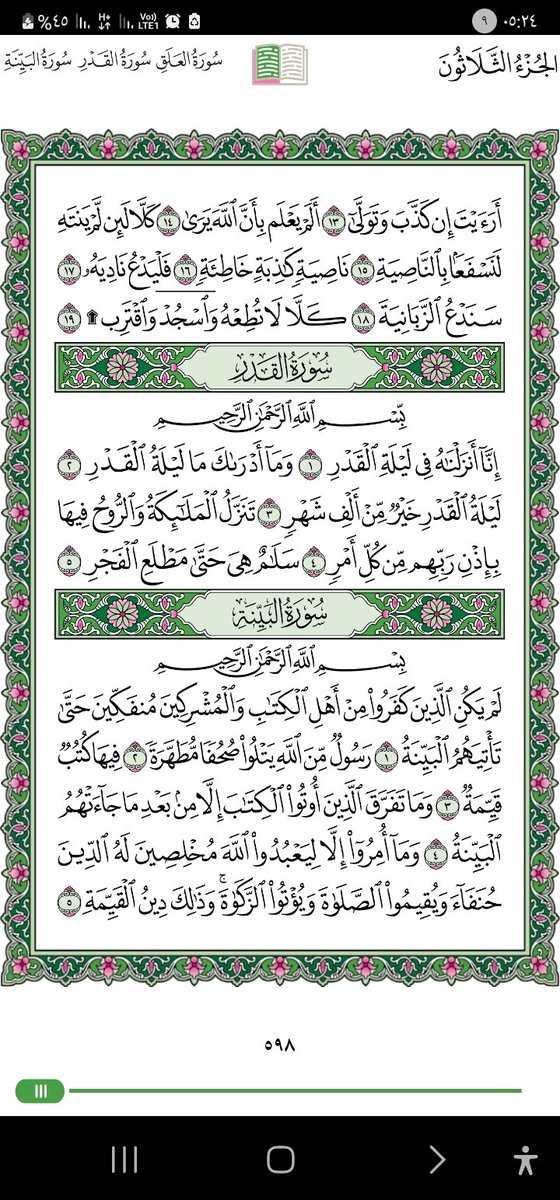 ٠٥:٢٤ ٩ Vo)) LTE1 H+ %٤٥
الجُزْءُ الثَّلَاثُونَ سُورَةُ العَلَقِ سُورَةُ القَدْرِ سُورَةُ البَيِّنَةِ
أَرَءَيْتَ إِن كَذَّبَ وَتَوَلَّىٰٓ ١٣ أَلَمْ يَعْلَم بِأَنَّ ٱللَّهَ يَرَىٰ ١٤ كَلَّا لَئِن لَّمْ يَنتَهِ
لَنَسْفَعًۢا بِٱلنَّاصِيَةِ ١٥ نَاصِيَةٍ كَٰذِبَةٍ خَاطِئَةٍ ١٦ فَلْيَدْعُ نَادِيَهُۥ ١٧
سَنَدْعُ ٱلزَّبَانِيَةَ ١٨ كَلَّا لَا تُطِعْهُ وَٱسْجُدْ وَٱقْتَرِب ۩ ١٩
سُورَةُ القَدْرِ
بِسْمِ ٱللَّهِ ٱلرَّحْمَٰنِ ٱلرَّحِيمِ
إِنَّآ أَنزَلْنَٰهُ فِى لَيْلَةِ ٱلْقَدْرِ ١ وَمَآ أَدْرَىٰكَ مَا لَيْلَةُ ٱلْقَدْرِ ٢
لَيْلَةُ ٱلْقَدْرِ خَيْرٌ مِّنْ أَلْفِ شَهْرٍ ٣ تَنَزَّلُ ٱلْمَلَٰٓئِكَةُ وَٱلرُّوحُ فِيهَا
بِإِذْنِ رَبِّهِم مِّن كُلِّ أَمْرٍ ٤ سَلَٰمٌ هِىَ حَتَّىٰ مَطْلَعِ ٱلْفَجْرِ ٥
سُورَةُ البَيِّنَةِ
بِسْمِ ٱللَّهِ ٱلرَّحْمَٰنِ ٱلرَّحِيمِ
لَمْ يَكُنِ ٱلَّذِينَ كَفَرُوا۟ مِنْ أَهْلِ ٱلْكِتَٰبِ وَٱلْمُشْرِكِينَ مُنفَكِّينَ حَتَّىٰ
تَأْتِيَهُمُ ٱلْبَيِّنَةُ ١ رَسُولٌ مِّنَ ٱللَّهِ يَتْلُوا۟ صُحُفًا مُّطَهَّرَةً ٢ فِيهَا كُتُبٌ
قَيِّمَةٌ ٣ وَمَا تَفَرَّقَ ٱلَّذِينَ أُوتُوا۟ ٱلْكِتَٰبَ إِلَّا مِنۢ بَعْدِ مَا جَآءَتْهُمُ
ٱلْبَيِّنَةُ ٤ وَمَآ أُمِرُوٓا۟ إِلَّا لِيَعْبُدُوا۟ ٱللَّهَ مُخْلِصِينَ لَهُ ٱلدِّينَ
حُنَفَآءَ وَيُقِيمُوا۟ ٱلصَّلَوٰةَ وَيُؤْتُوا۟ ٱلزَّكَوٰةَ ۚ وَذَٰلِكَ دِينُ ٱلْقَيِّمَةِ ٥
٥٩٨